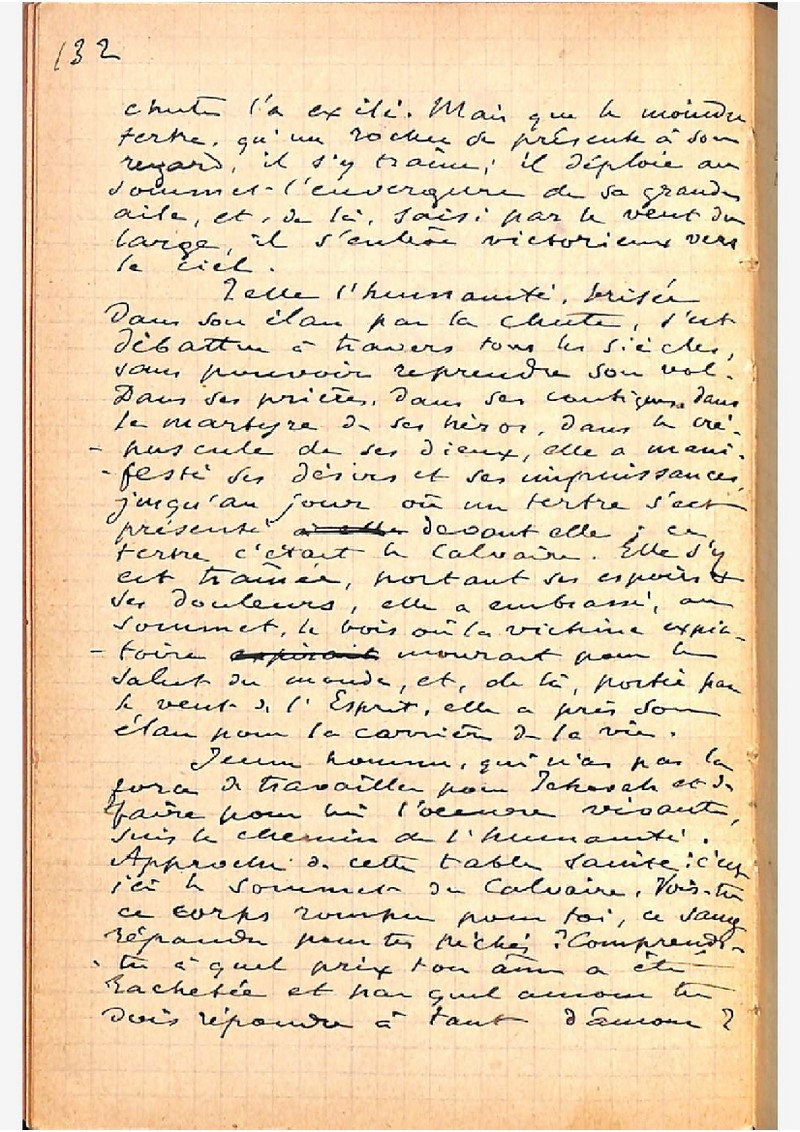 132
chute l'a exilé. Mais que le moindre
tertre, qu'un rocher se présente à son
regard, il s'y traîne; il déploie au
sommet l'envergure de sa grande
aile, et, de là, saisi par le vent du
large, il s'enlève victorieux vers
le ciel.
Telle l'humanité, brisée
Dans son élan par la chute, s'est
débattue à travers tous les siècles,
sans pouvoir reprendre son vol.
Dans ses prières, dans ses cantiques, dans
le martyre de ses héros, dans le cré-
- puscule de ses dieux, elle a mani-
- festé ses désirs et ses impuissances,
jusqu'au jour où un tertre s'est
présenté à elle devant elle; ce
tertre c'était le Calvaire. Elle s'y
est traînée, portant ses espoirs et
ses douleurs, elle a embrassé, au
sommet, le bois où la victime expia-
- toire expirait mourant pour le
salut du monde, et, de là, portée par
le vent de l'Esprit, elle a pris son
élan pour la carrière de la vie.
Jeune homme, qui n'as pas la
force de travailler pour Jehovah et de
faire pour lui l'oeuvre vivante,
suis le chemin de l'humanité.
Approche de cette table sainte: c'est
ici le sommet du Calvaire. Vois-tu
ce corps rompu pour toi, ce sang
répandu pour tes péchés? Comprends-
- tu à quel prix ton âme a été
rachetée et par quel amour tu
dois répondre à tant d'amour?